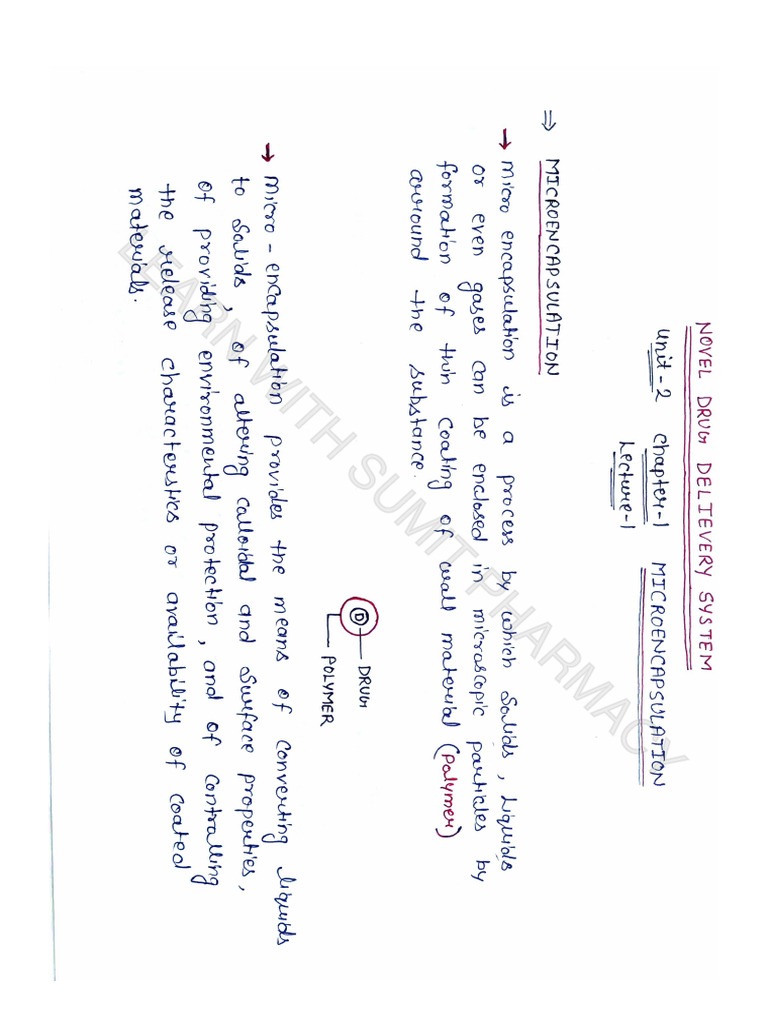 NOVEL DRUG DELIEVERY SYSTEM
Unit-2 Chapter-1 MICROENCAPSULATION
Lecture-1
⇒ MICROENCAPSULATION
→ Micro encapsulation is a process by which Solids, Liquids
or even gases can be enclosed in microscopic particles by
formation of thin coating of wall material (Polymer)
around the substance.
D
DRUG
POLYMER
→ Micro-encapsulation provides the means of converting liquids
to solids, of altering colloidal and surface properties,
of providing environmental protection, and of controlling
the release characterstics or availability of coated
materials.
LEARN WITH SUMIT PHARMACY